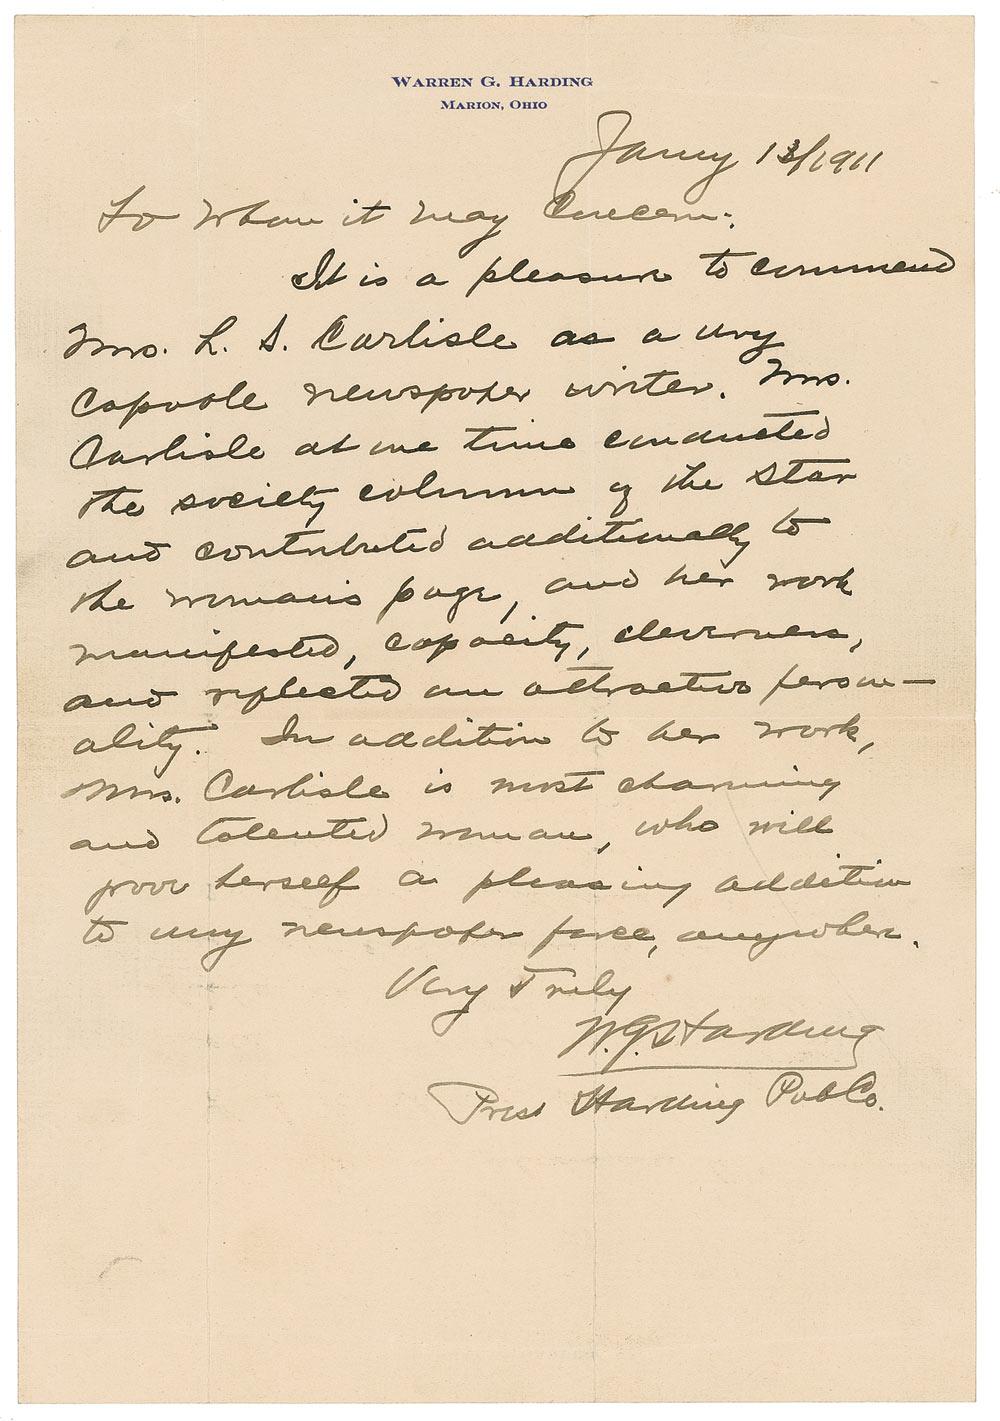 WARREN G. HARDING
MARION, OHIO
Jany 13/1911
To Whom it may Concern:
It is a pleasure to commend
Mrs. L. S. Carlisle as a very
capable newspaper writer. Mrs.
Carlisle at one time conducted
the society column of the Star
and contributed additionally to
the woman's page, and her work
manifested, capacity, cleverness,
and reflected an attractive person-
ality. In addition to her work,
Mrs. Carlisle is most charming
and talented woman, who will
prove herself a pleasing addition
to any newspaper force, anywhere.
Very Truly
W.G. Harding
Prest Harding Pub Co.